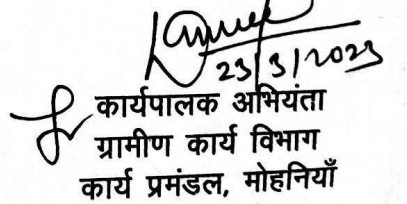 23/3/2023
कार्यपालक अभियंता
ग्रामीण कार्य विभाग
कार्य प्रमंडल, मोहनियाँ